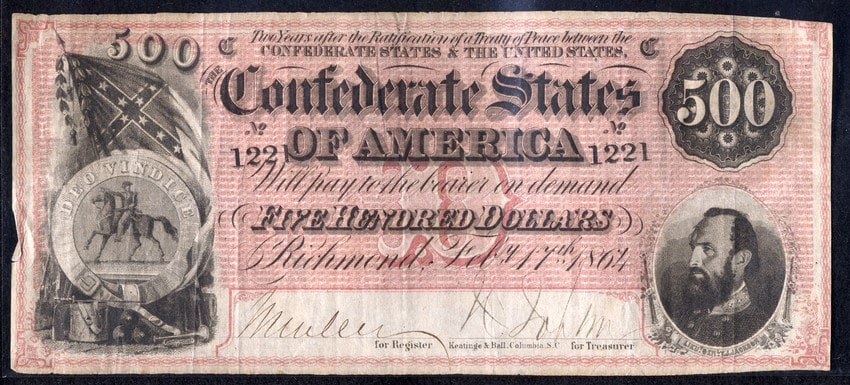 500
C
Two Years after the Ratification of a Treaty of Peace between the
CONFEDERATE STATES & THE UNITED STATES,
C
THE
Confederate States
500
No
No
1221
OF AMERICA
1221
Will pay to the bearer on demand
DEO VINDICE
FIVE HUNDRED DOLLARS
Richmond, Feby. 17th 1864
for Register
Keatinge & Ball, Columbia, S.C
for Treasurer